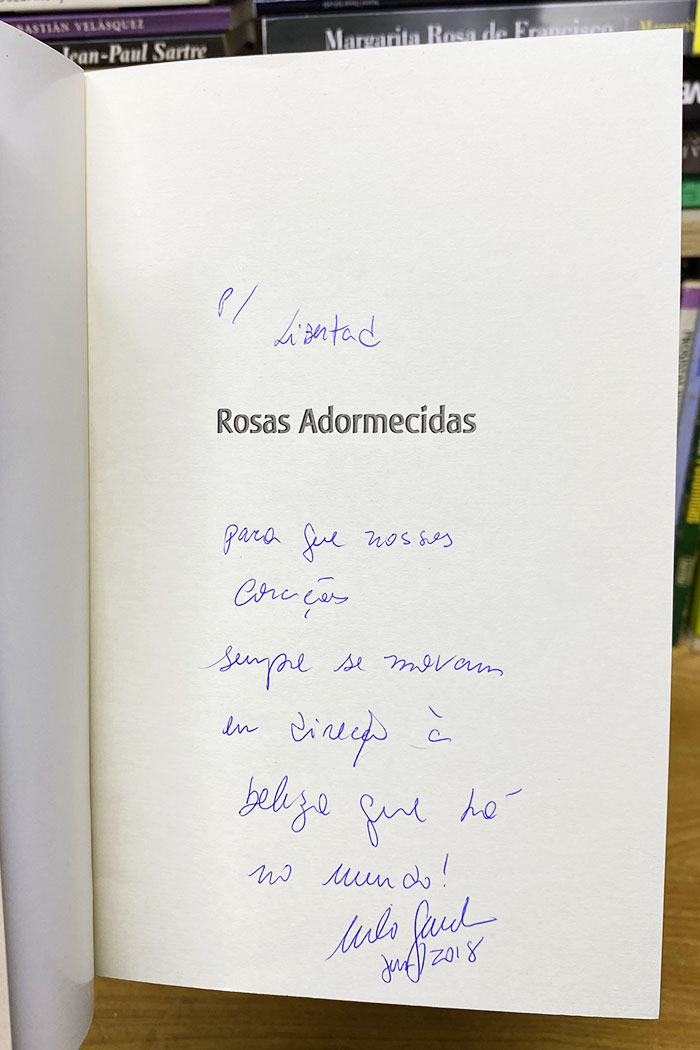 BASTIÁN VELÁSQUEZ
Jean-Paul Sartre
Margarita Rosa de Francisco
P/
Libertad
Rosas Adormecidas
para que nossos
corações
sempre se movam
em direção à
beleza que há
no mundo!
2018